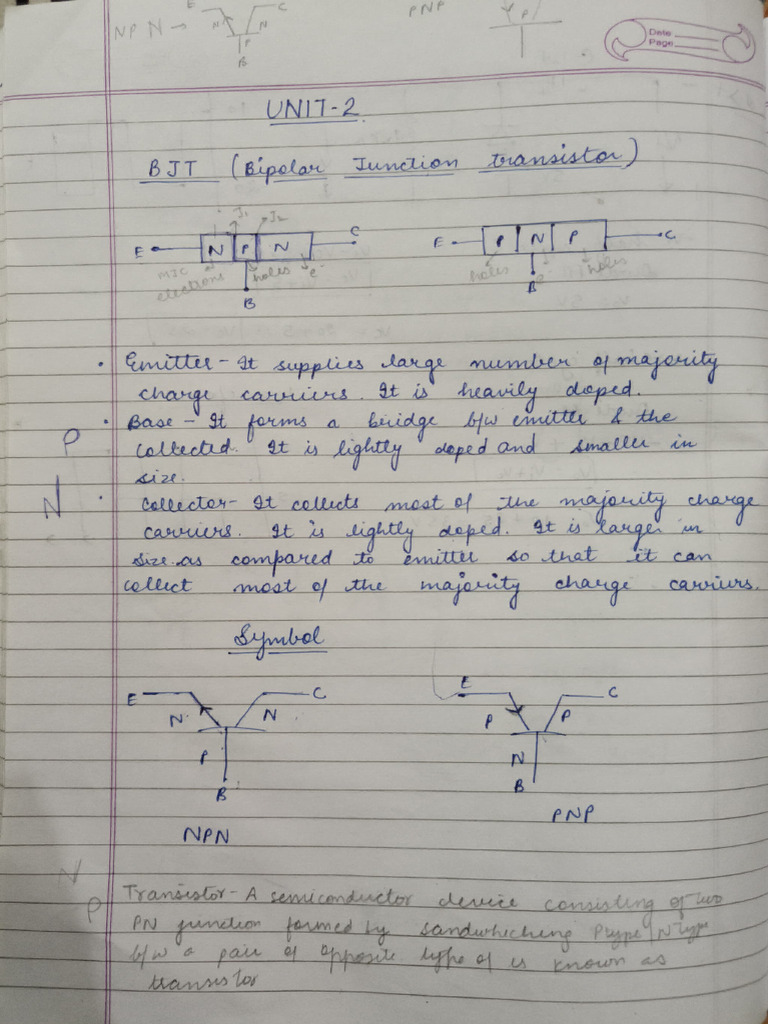 NPN → E C
N N
P
B
PNP
P
Date
Page
UNIT-2
BJT (Bipolar Junction transistor)
J1 J2
E N P N C
holes e
electrons
B
E P N P C
holes e holes
B
• Emitter - It supplies large number of majority
charge carriers. It is heavily doped.
• Base - It forms a bridge b/w emitter & the
P
collected. It is lightly doped and smaller in
size.
N
• Collector- It collects most of the majority charge
carriers. It is lightly doped. It is larger in
size as compared to emitter so that it can
collect most of the majority charge carriers.
Symbol
E C
N N
P
B
NPN
E C
P P
N
B
PNP
N
P
Transistor- A semiconductor device consisting of two
PN junction formed by sandwhiching Ptype/N type
b/w a pair of opposite type of is known as
transistor